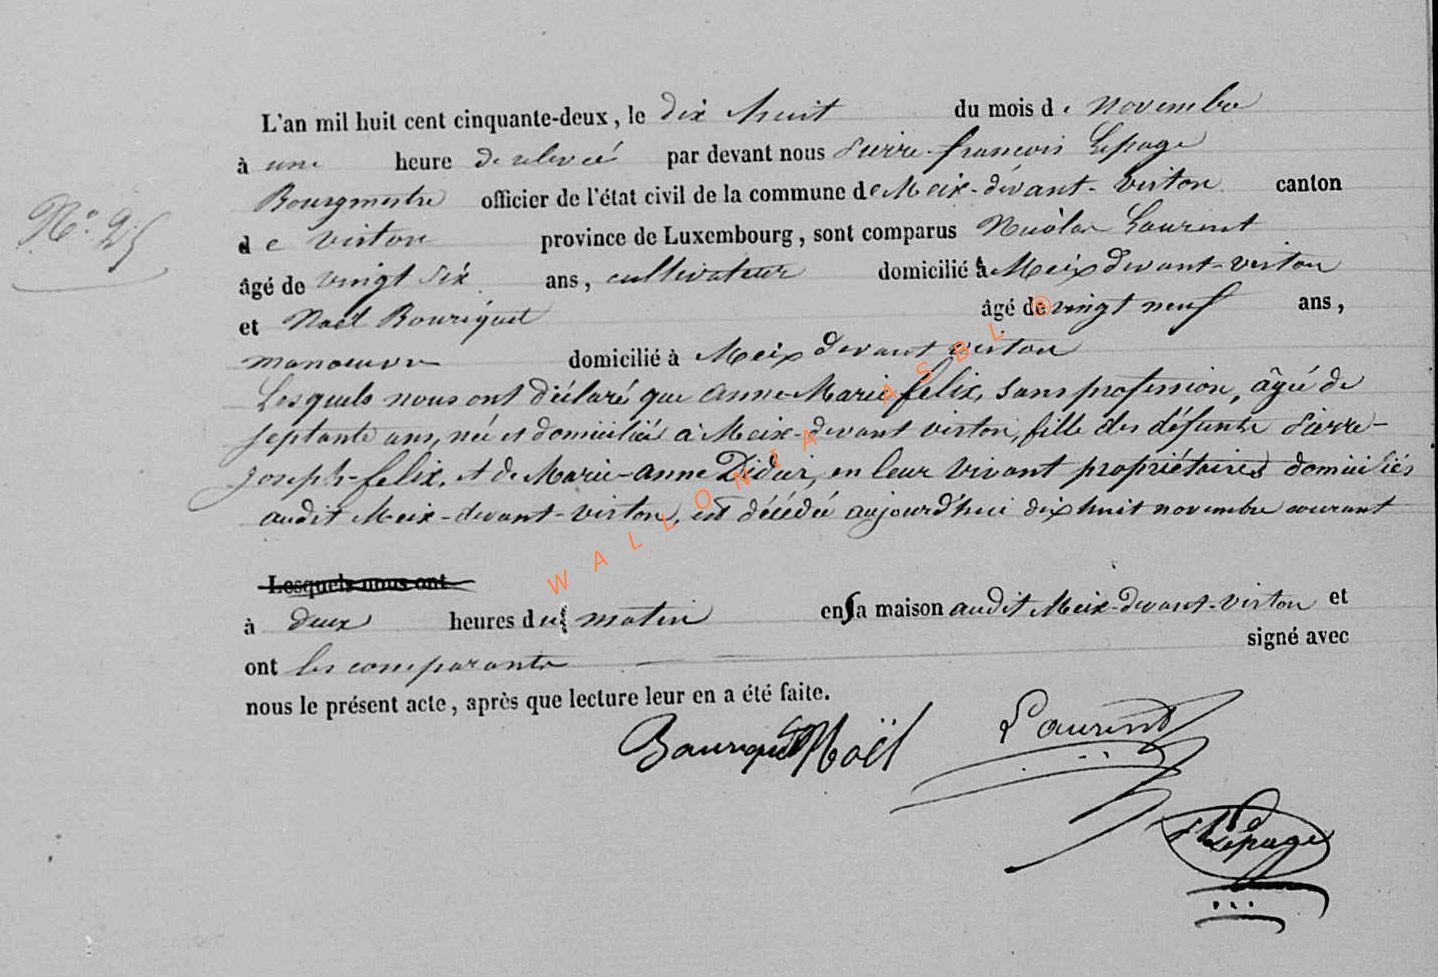 L'an mil huit cent cinquante-deux, le dix huit du mois de novembre
à une heure de relevée par devant nous Pierre-françois Lepage
Bourgmestre officier de l'état civil de la commune de Meix-devant-virton canton
de virton province de Luxembourg, sont comparus Nicolas Laurent
N° 25
âgé de vingt six ans, cultivateur domicilié à Meix devant-virton
et Noël Bouriquet âgé de vingt neuf ans,
manoeuvre domicilié à Meix devant virton
Lesquels nous ont déclaré que anne-Marie felix, sans profession, âgée de
septante ans, née et domiciliée à Meix-devant virton, fille des défunts Pierre-
joseph-felix, et de Marie-anne Didier, en leur vivant propriétaires domiciliés
audit Meix-devant-virton, est décédée aujourd'hui dix huit novembre courant
Lesquels nous ont
à deux heures du matin en sa maison audit Meix-devant-virton et
ont les comparants signé avec
nous le présent acte, après que lecture leur en a été faite.
Bouriquet Noël Laurent
Lepage
WALLONIA ASBL ®